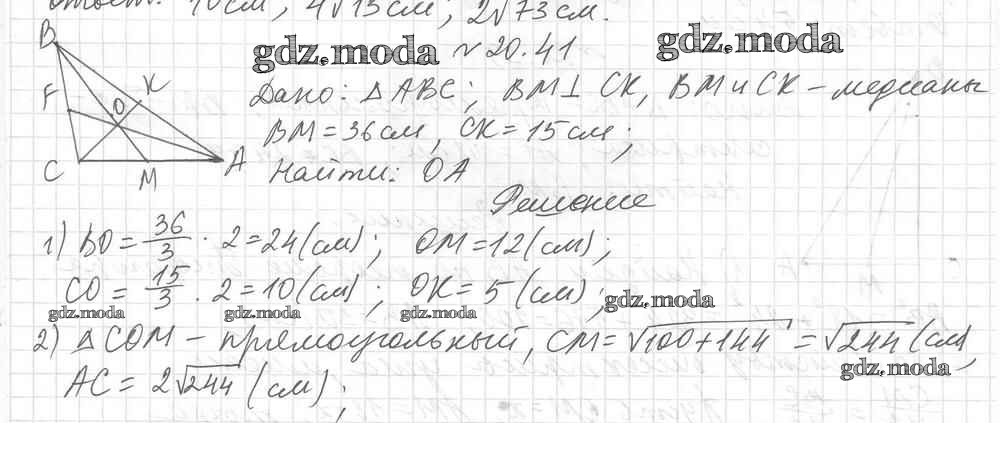 ответ: 10 см, 4√15 см; 2√73 см.
gdz.moda № 20.41 gdz.moda
B
F
K
O
C
M
A
Дано: △ABC; BM⊥CK, BM и CK – медианы
BM = 36 см, CK = 15 см;
Найти: OA
Решение
1) BO = 36/3 · 2 = 24 (см); OM = 12 (см);
CO = 15/3 · 2 = 10 (см); OK = 5 (см); gdz.moda
gdz.moda gdz.moda gdz.moda
2) △COM – прямоугольный, CM = √100+144 = √244 (см),
gdz.moda
AC = 2√244 (см);